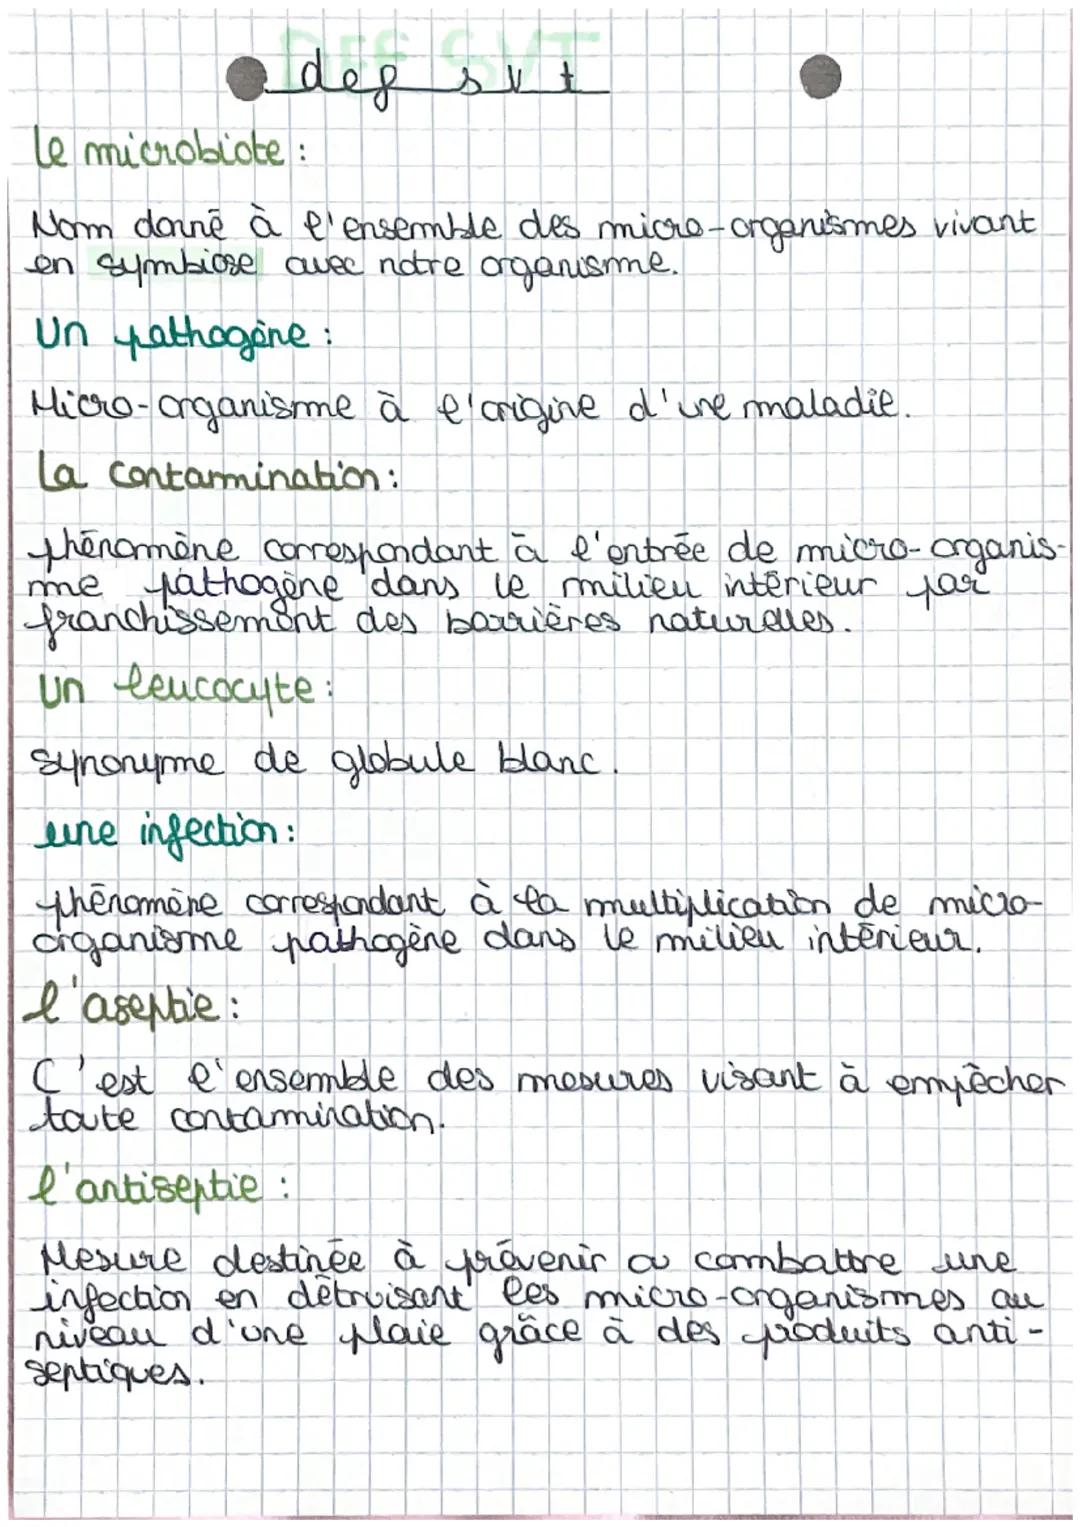 DEF SVT
def svt
le microbiote :
Nom donné à l'ensemble des micro-organismes vivant
en symbiose avec notre organisme.
Un pathogène :
Micro-organisme à l'origine d'une maladie.
La contamination :
phénomène correspondant à l'entrée de micro-organis-
me pathogène dans le milieu intérieur par
franchissement des barrières naturelles.
Un leucocyte :
synonyme de globule blanc.
une infection :
phénomène correspondant à la multiplication de micro-
organisme pathogène dans le milieu intérieur.
l'aseptie :
C'est l'ensemble des mesures visant à empêcher
toute contamination.
l'antiseptie :
Mesure destinée à prévenir ou combattre une
infection en détruisant les micro-organismes au
niveau d'une plaie grâce à des produits anti-
septiques.